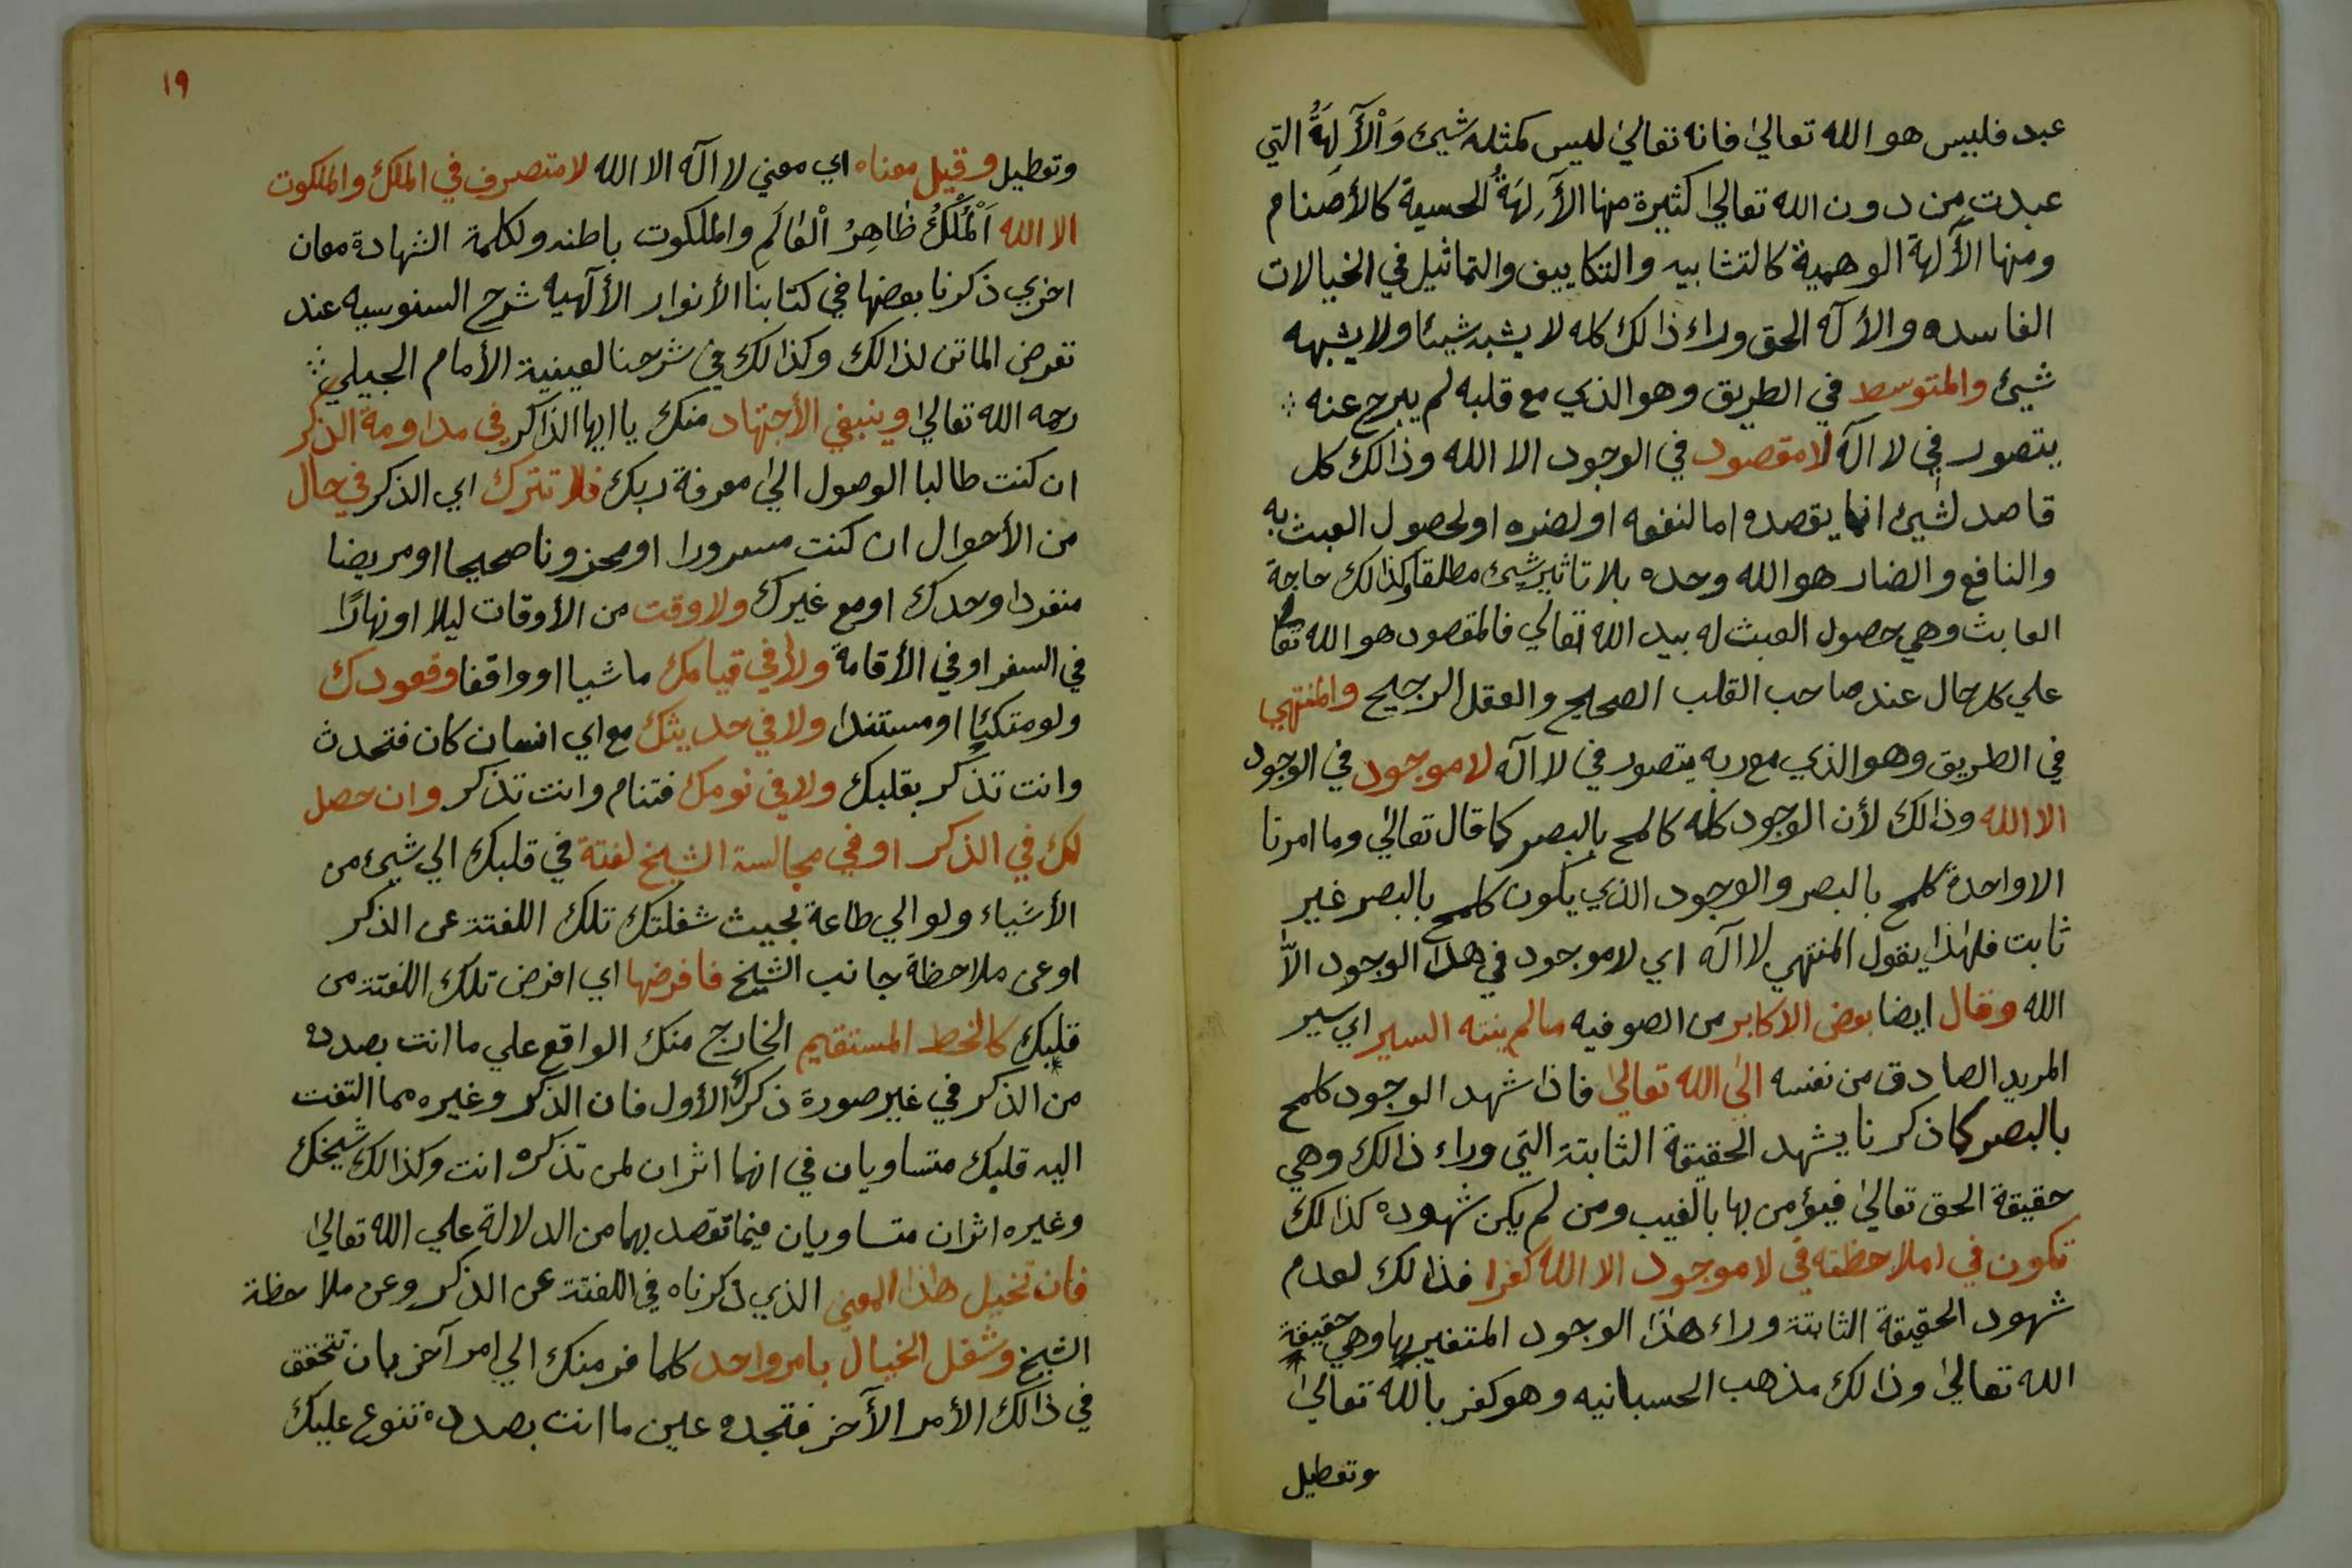 عبد فليس هو الله تعالى فانه تعالى ليس كمثله شيئ وَاْلآلِهَةُ التي
عبدت من دون الله تعالى كثيرة منها الآلِهَةُ الحسية كالأصنام
ومنها الآلهة الوهمية كالتشابيه والتكاييف والتماثيل في الخيالات
الفاسده والأله الحق وراء ذالك كله لا يشبه شيئا ولا يشبهه
شيئ والمتوسط في الطريق وهو الذي مع قلبه لم يبرح عنه
يتصور في لا اله لا مقصود في الوجود الا الله وذالك كل
قاصد لشيئ انما يقصده اما لنفعه او لضره او لحصول العبث به
والنافع والضار هو الله وحده بلا تاثير شيئ مطلقا وكذالك حاجة
العابث وهي حصول العبث له بيد الله تعالي فالمقصود هو الله تعا
علي كل حال عند صاحب القلب الصحيح والعقل الرجيح والمنتهي
في الطريق وهو الذي مع ربه يتصور في لا اله لا موجود في الوجود
الا الله وذالك لأن الوجود كله كالمح بالبصر كما قال تعالي وما امرنا
الا واحدة كلمح بالبصر والوجود الذي يكون كلمح بالبصر غير
ثابت فلهذا يقول المنتهي لا اله اي لا موجود في هذا الوجود الاّ
الله وقال ايضا بعض الاكابر من الصوفيه ما لم ينته السير اي سير
المريد الصادق من نفسه الى الله تعالى فاذا شهد الوجود كلمح
بالبصر كما ذكرنا يشهد الحقيقة الثابتة التي وراء ذالك وهي
حقيقة الحق تعالى فيؤمن بها بالغيب ومن لم يكن شهوده كذالك
تكون في املاحظته في لا موجود الا الله كفرا فذالك لعدم
شهود الحقيقة الثابتة وراء هذا الوجود المتغير بها وهي حقيقة
الله تعالى وذالك مذهب الحسبانيه وهو كفر بالله تعالى
وتعطيل
١٩
وتعطيل وقيل معناه اي معني لا اله الا الله لا متصرف في الملك والملكوت
الا الله اَلْمُلْكُ ظَاهِرُ اْلعَالَمِ والملكوت باطنه ولكلمة الشهادة معان
اخري ذكرنا بعضها في كتابنا الأنوار الألهيه شرح السنوسيه عند
تعرض الماتن لذالك وكذالك في شرحنا لعينية الأمام الجيلي
رحمه الله تعالى وينبغي الأجتهاد منك يا ايها الذاكر في مداومة الذكر
ان كنت طالبا الوصول الى معرفة ربك فلا تترك اي الذكر في حال
من الأحوال ان كنت مسرورا او محزونا صحيحا او مريضا
منفردا وحدك او مع غيرك ولا وقت من الأوقات ليلا او نهارًا
في السفر او في الأقامة ولا في قيامك ماشيا او واقفا وقعودك
ولو متكئا او مستندا ولا في حديثك مع اي انسان كان فتحدث
وانت تذكر بقلبك ولا في نومك فتنام وانت تذكر وان حصل
لك في الذكر او في مجالسة الشيخ لفتة في قلبك الي شيئ من
الأشياء ولو الي طاعة بحيث شغلتك تلك اللفتة عن الذكر
او عن ملاحظة جانب الشيخ فافرضها اي افرض تلك اللفتة من
قلبك كالخط المستقيم الخارج منك الواقع علي ما انت بصدده
من الذكر في غير صورة ذكرك الأول فان الذكر وغيره مما التفت
اليه قلبك متساويان في انهما اثران لمن تذكره انت وكذالك شيخك
وغيره اثران متساويان فيما تقصد بهما من الدلالة علي الله تعالى
فان تخيل هذا المعني الذي ذكرناه في اللفتة عن الذكر وعن ملاحظة
الشيخ وشغل الخيال بامر واحد كلما فر منك الي امر آخر بان تتحقق
في ذالك الأمر الآخر فتجده عين ما انت بصدده تنوع عليك